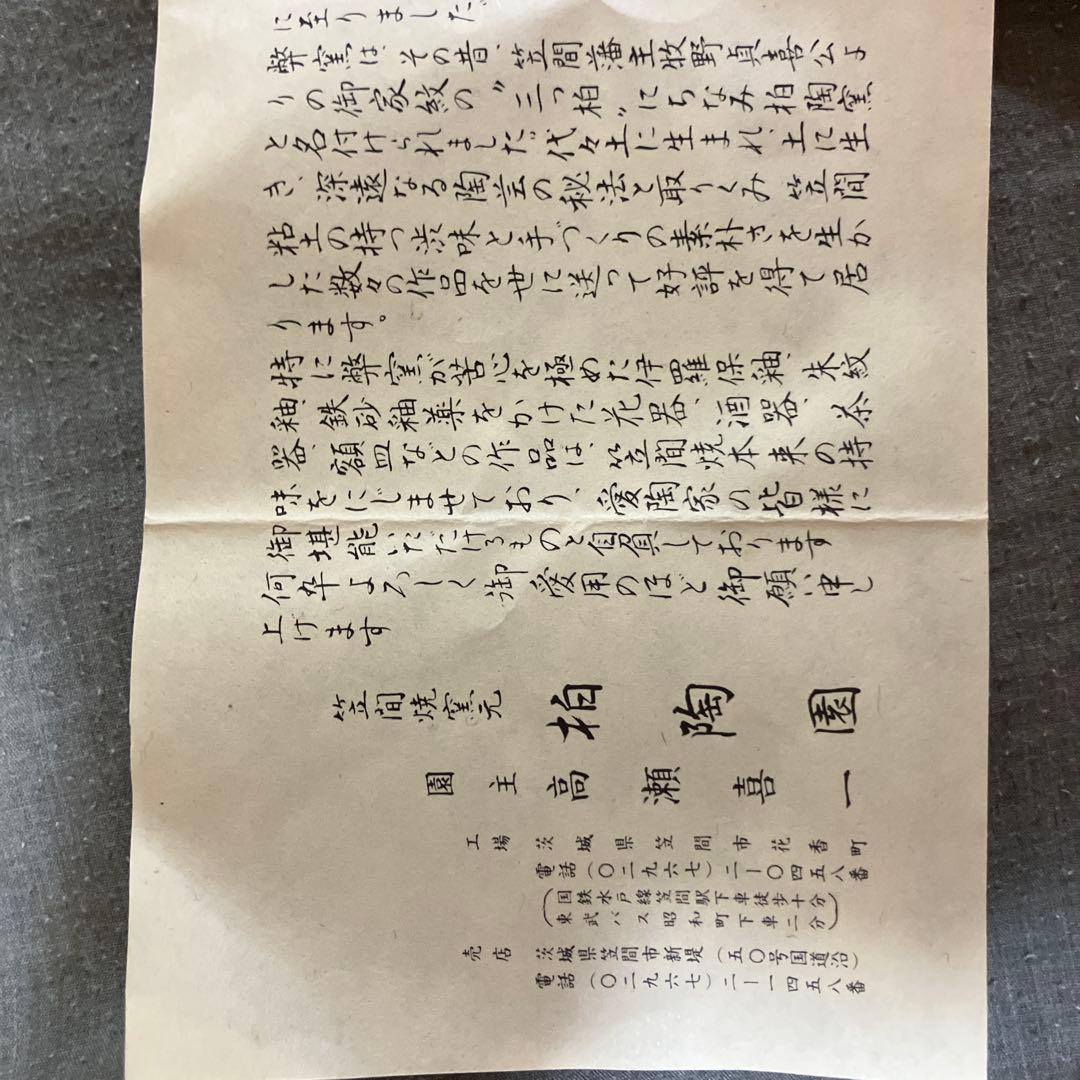 に至りました。
弊窯は、その昔、笠間藩主牧野貞喜公よ
りの御家紋の〝三つ柏〟にちなみ柏陶窯
と名付けられました。代々土に生まれ、土に生
き、深遠なる陶芸の秘法と取りくみ笠間
粘土の持つ渋味と手づくりの素朴さを生か
した数々の作品を世に送って好評を得て居
ります。
特に弊窯が苦心を極めた伊羅保釉、朱紋
釉、鉄砂釉薬をかけた花器、酒器、茶
器、額皿などの作品は、笠間焼本来の持
味をにじませており、愛陶家の皆様に
御堪能いただけるものと自負しております
何卒よろしく御愛用のほど御願い申し
上げます
笠間焼窯元 柏陶園
園主 高瀬喜一
工場 茨城県笠間市花香町
電話(〇二九六七)二―〇四五八番
(国鉄水戸線笠間駅下車徒歩十分
東武バス昭和町下車二分)
売店 茨城県笠間市新堤(五〇号国道沿)
電話(〇二九六七)二―一四五八番